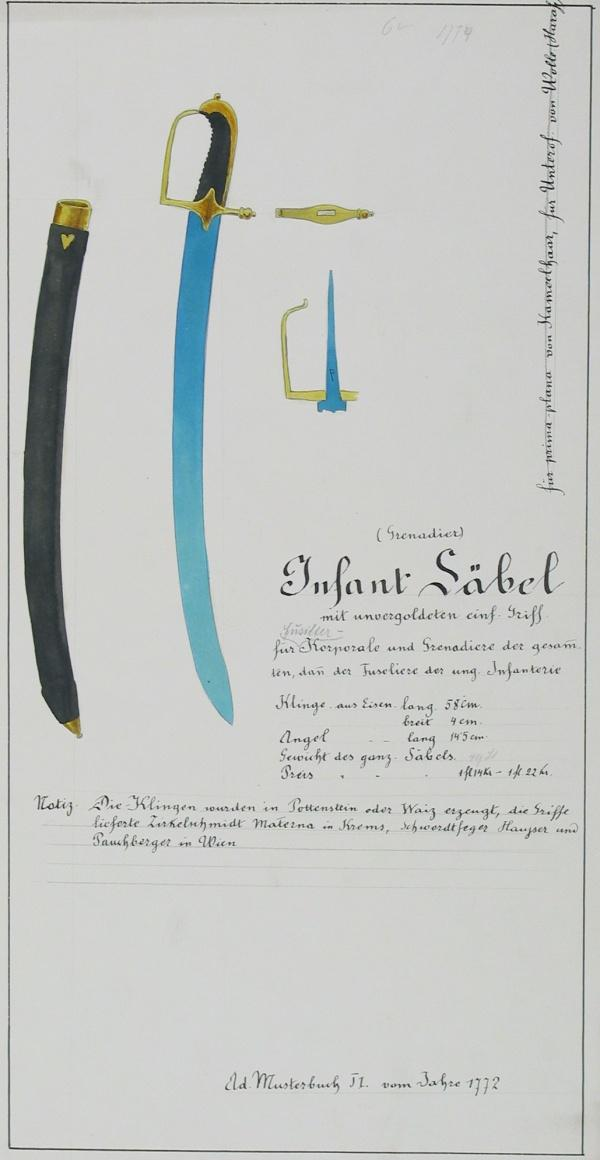 1774
für prima-plana von Kameelhaar, für Unterof. von Wolle (Haras
(Grenadier)
Infant Säbel
mit unvergoldeten einf. Griff
Fusilier-
für Korporale und Grenadiere der gesam̄-
ten, dan̄ der Fuseliere der ung. Infanterie
Klinge aus Eisen lang 58 cm.
breit 4 cm.
Angel - - lang 14·5 cm.
Gewicht des ganz. Säbels.
Preis " - " 1 fl 14 Kr - 1 fl. 22 Kr.
Notiz Die Klingen wurden in Pottenstein oder Waiz erzeugt, die Griffe
lieferte Zirkelschmidt Materna in Krems, Schwerdtfeger Haujser und
Pauchberger in Wien
Ad. Musterbuch II. vom Jahre 1772